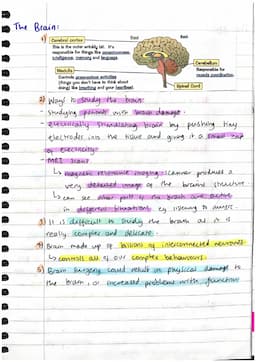 The Brain:
1) Cerebral cortex
This is the outer wrinkly bit. It's
responsible for things like consciousness,
intelligence, memory and language.
Front
Back
Medulla
Controls unconscious activities
(things you don't have to think about
doing) like breathing and your heartbeat.
Cerebellum
Responsible for
muscle coordination.
Spinal Cord
2) Ways to study the brain:
- Studying patients with brain damage.
- electrically stimulating brain by pushing tiny
electrodes into the tissue and giving it a small zap
of electricity.
- MRI Scans
↳ magnetic resonance imaging scanner produces a
very detailed image of the brain's structure
↳ can see other part of the brain are active
in different situations eg listening to music.
3) It is difficult to study the brain as it is
really complex and delicate.
4) Brain made up of billions of interconnected neurones
↳ controls all of our complex behaviours.
5) Brain surgery could result in physical damage to
the brain, or increased problems with function